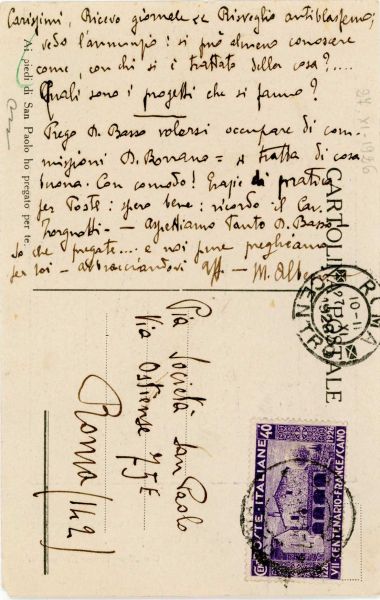 Carissimi, Ricevo giornale "Risveglio antiblasfemo;
vedo l'annunzio: si può almeno conoscere
come, con chi si è trattato della cosa?....
Quali sono i progetti che si fanno?
Prego D. Basso volersi occupare di com-
missioni D. Borrano = tratta di cosa
buona. Con comodo! Grazie di pratica
per Poste: spero bene: ricordo il Cav.
- Aspettiamo tanto D. Basso
So che pregate... e noi pure preghiamo
per voi - abbracciandovi aff - M. Alb
Ai piedi di San Paolo ho pregato per te.
27 XI 1926
CARTOLINA POSTALE
ROMA
CENTRO
10-11
27 XI
1926
Pia Società San Paolo
Via Ostiense 75E
Roma (142)
POSTE·ITALIANE
CENT 40
1226 1926
VII·CENTENARIO·FRANCESCANO